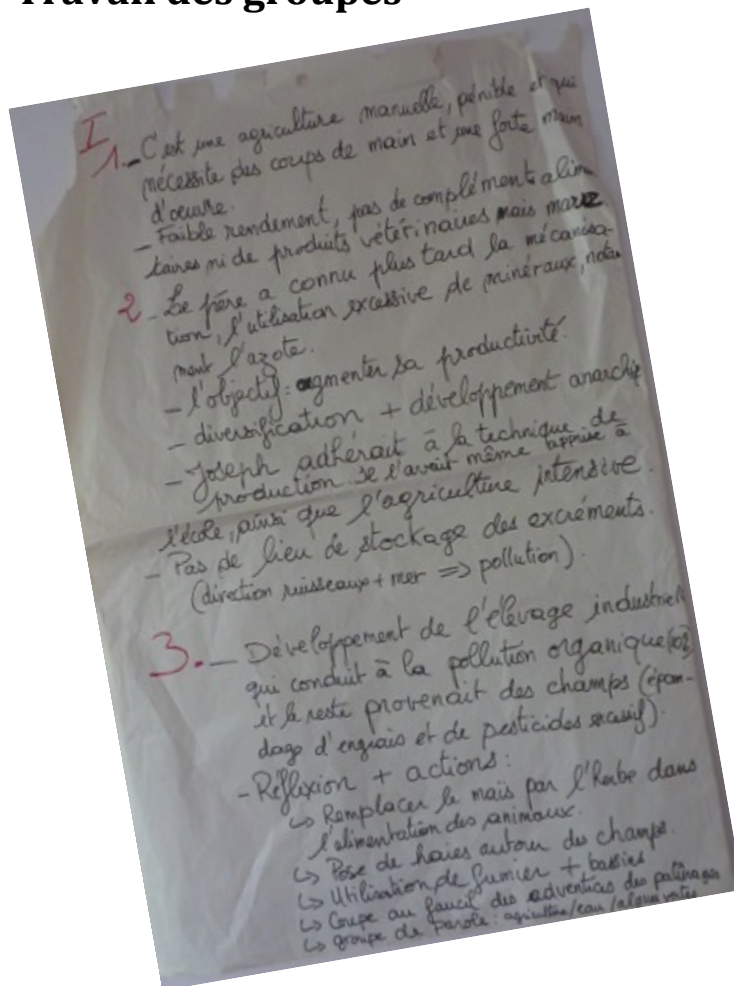 Travail des groupes
I
1. - C'est une agriculture manuelle, pénible et que
nécessite des coups de main et une forte main
d'œuvre.
- Faible rendement, pas de complément alim
taires ni de produits vétérinaires mais
2 - Le père a connu plus tard la mécanisa-
tion, l'utilisation excessive de minéraux, nota
ment l'azote.
- l'objectif: augmenter sa productivité.
- diversification + développement anarchiq
- Joseph adhérait à la technique de
production. Il l'avait même apprise à
l'école, ainsi que l'agriculture intensive.
- Pas de lieu de stockage des excréments.
(direction ruisseaux + mer => pollution).
3. - Développement de l'élevage industriel
qui conduit à la pollution organique
et le reste provenait des champs (épan-
dage d'engrais et de pesticides excessif).
- Réflexion + actions :
↳ Remplacer le mais par l'herbe dans
l'alimentation des animaux.
↳ Pose de haies autour des champs.
↳ Utilisation de fumier + bassins
↳ Coupe au faucil des adventices des pâturages
↳ groupe de parole : agriculture/eau/algues vertes